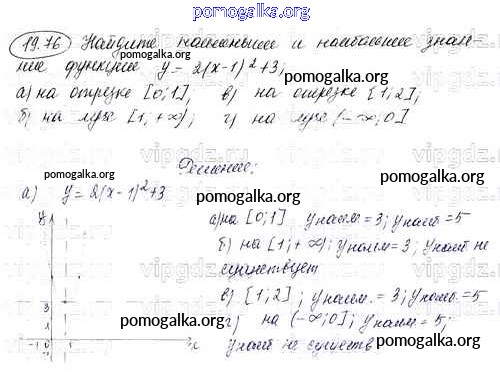 pomogalka.org
19.76 Найдите наименьшее и наибольшее значе-
ние функции y = 2(x-1)²+3;
pomogalka.org
а) на отрезке [0;1], в) на отрезке [1;2];
б) на луче [1,+∞); г) на луче (-∞;0]
pomogalka.org
Решение:
pomogalka.org
а) y = 2(x-1)²+3
y
а) на [0;1] yнаим = 3; yнаиб = 5
б) на [1;+∞); yнаим = 3; yнаиб не
существует
в) [1;2]; yнаим. = 3; yнаиб. = 5
pomogalka.org
г) на (-∞;0]; yнаим = 5;
yнаиб не существ
3
-1 0 1 x
pomogalka.org
pomogalka.org